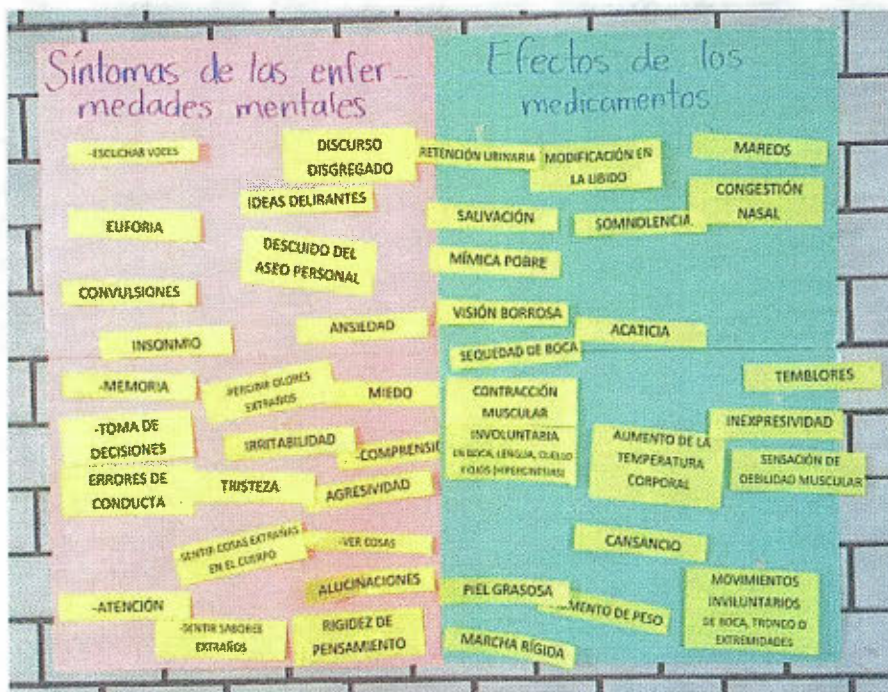 Síntomas de las enfer-
medades mentales
-ESCUCHAR VOCES
DISCURSO
DISGREGADO
IDEAS DELIRANTES
EUFORIA
DESCUIDO DEL
ASEO PERSONAL
CONVULSIONES
ANSIEDAD
INSONMIO
-MEMORIA
-PERCIBIR OLORES
EXTRAÑOS
MIEDO
-TOMA DE
DECISIONES
IRRITABILIDAD
ERRORES DE
CONDUCTA
TRISTEZA
AGRESIVIDAD
-SENTIR COSAS EXTRAÑAS
EN EL CUERPO
-VER COSAS
ALUCINACIONES
-ATENCIÓN
-SENTIR SABORES
EXTRAÑOS
RIGIDEZ DE
PENSAMIENTO
Efectos de los
medicamentos
RETENCIÓN URINARIA
MODIFICACIÓN EN
LA LIBIDO
MAREOS
CONGESTIÓN
NASAL
SALIVACIÓN
SOMNOLENCIA
MÍMICA POBRE
VISIÓN BORROSA
ACATICIA
SEQUEDAD DE BOCA
TEMBLORES
CONTRACCIÓN
MUSCULAR
INVOLUNTARIA
EN BOCA, LENGUA, CUELLO
Y OJOS (HIPERCINETIAS)
INEXPRESIVIDAD
AUMENTO DE LA
TEMPERATURA
CORPORAL
SENSACIÓN DE
DEBILIDAD MUSCULAR
CANSANCIO
PIEL GRASOSA
DE PESO
MOVIMIENTOS
INVILUNTARIOS
DE BOCA, TRONCO O
EXTREMIDADES
MARCHA RÍGIDA